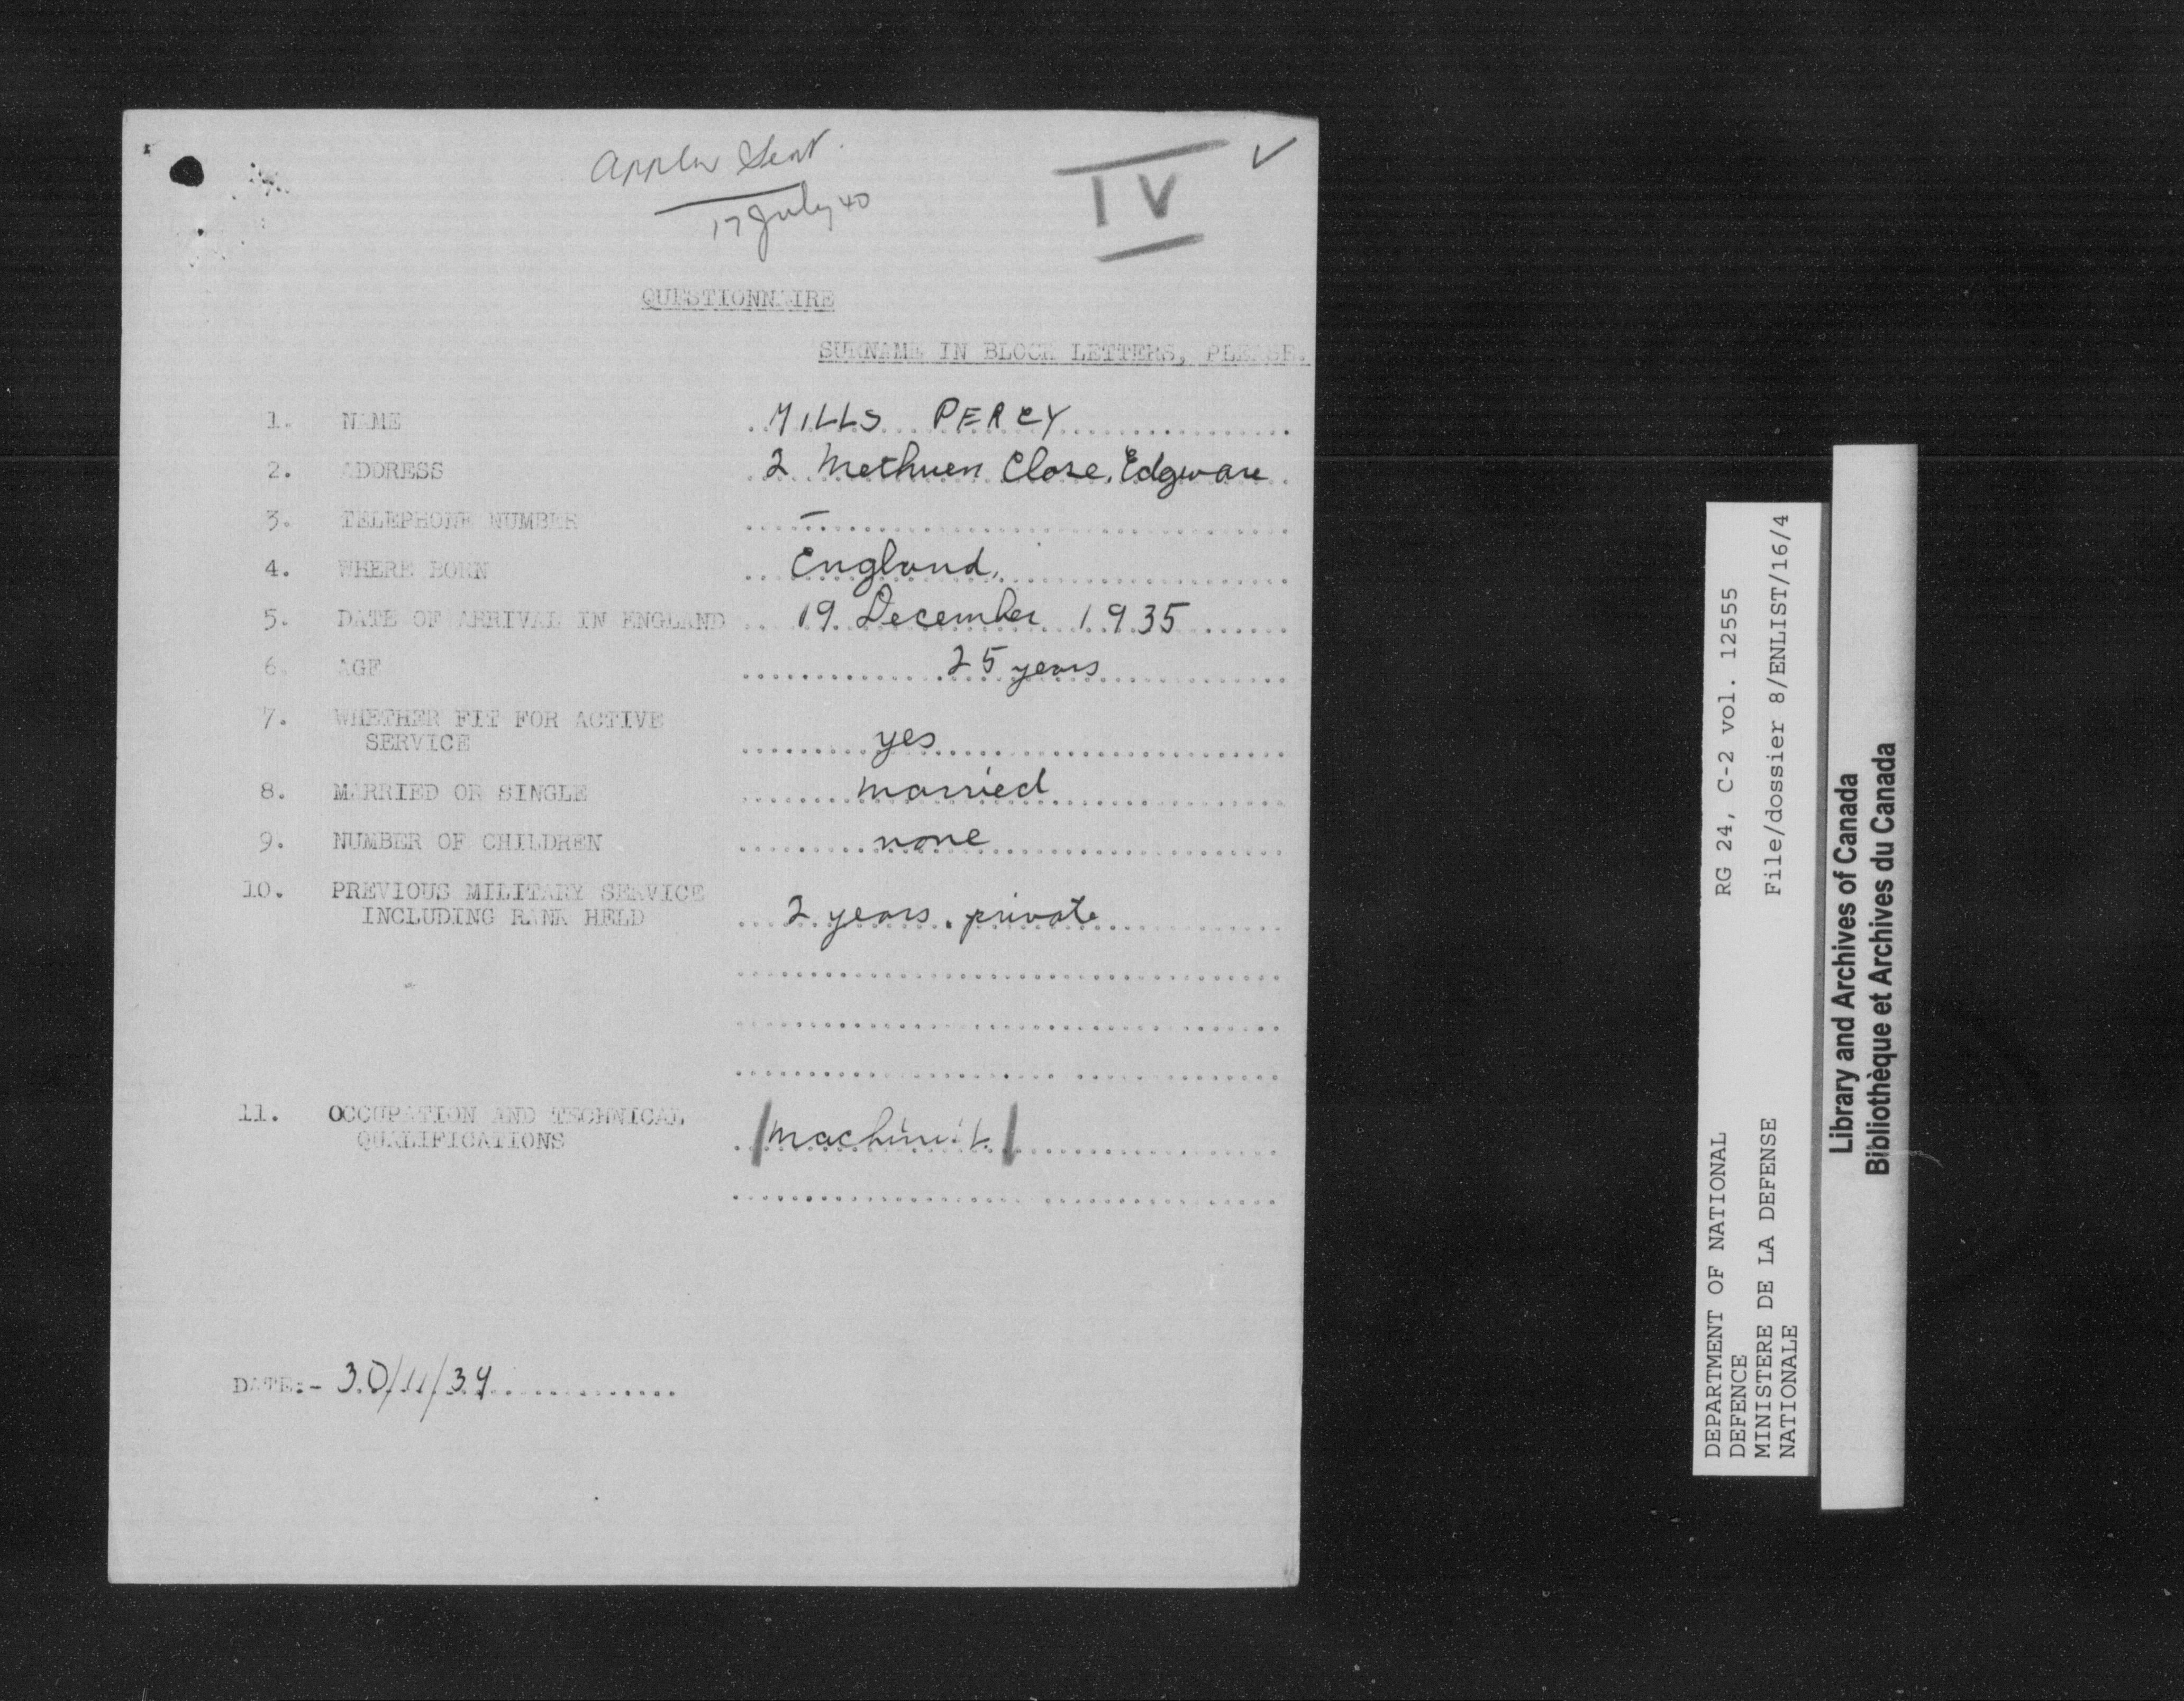 Appln Sent.
17 July 40
IV ✓
QUESTIONNAIRE
SURNAME IN BLOCK LETTERS, PLEASE.
1. NAME MILLS PERCY
2. ADDRESS 2 Methuen Close, Edgware
3. TELEPHONE NUMBER —
4. WHERE BORN England.
5. DATE OF ARRIVAL IN ENGLAND 19 December 1935
6. AGE 25 years
7. WHETHER FIT FOR ACTIVE
SERVICE yes
8. MARRIED OR SINGLE married
9. NUMBER OF CHILDREN none
10. PREVIOUS MILITARY SERVICE
INCLUDING RANK HELD 2 years. private
11. OCCUPATION AND TECHNICAL
QUALIFICATIONS machinist.
DATE:- 30/11/39
DEPARTMENT OF NATIONAL RG 24, C-2 vol. 12555
DEFENCE
MINISTERE DE LA DEFENSE File/dossier 8/ENLIST/16/4
NATIONALE
Library and Archives of Canada
Bibliothèque et Archives du Canada